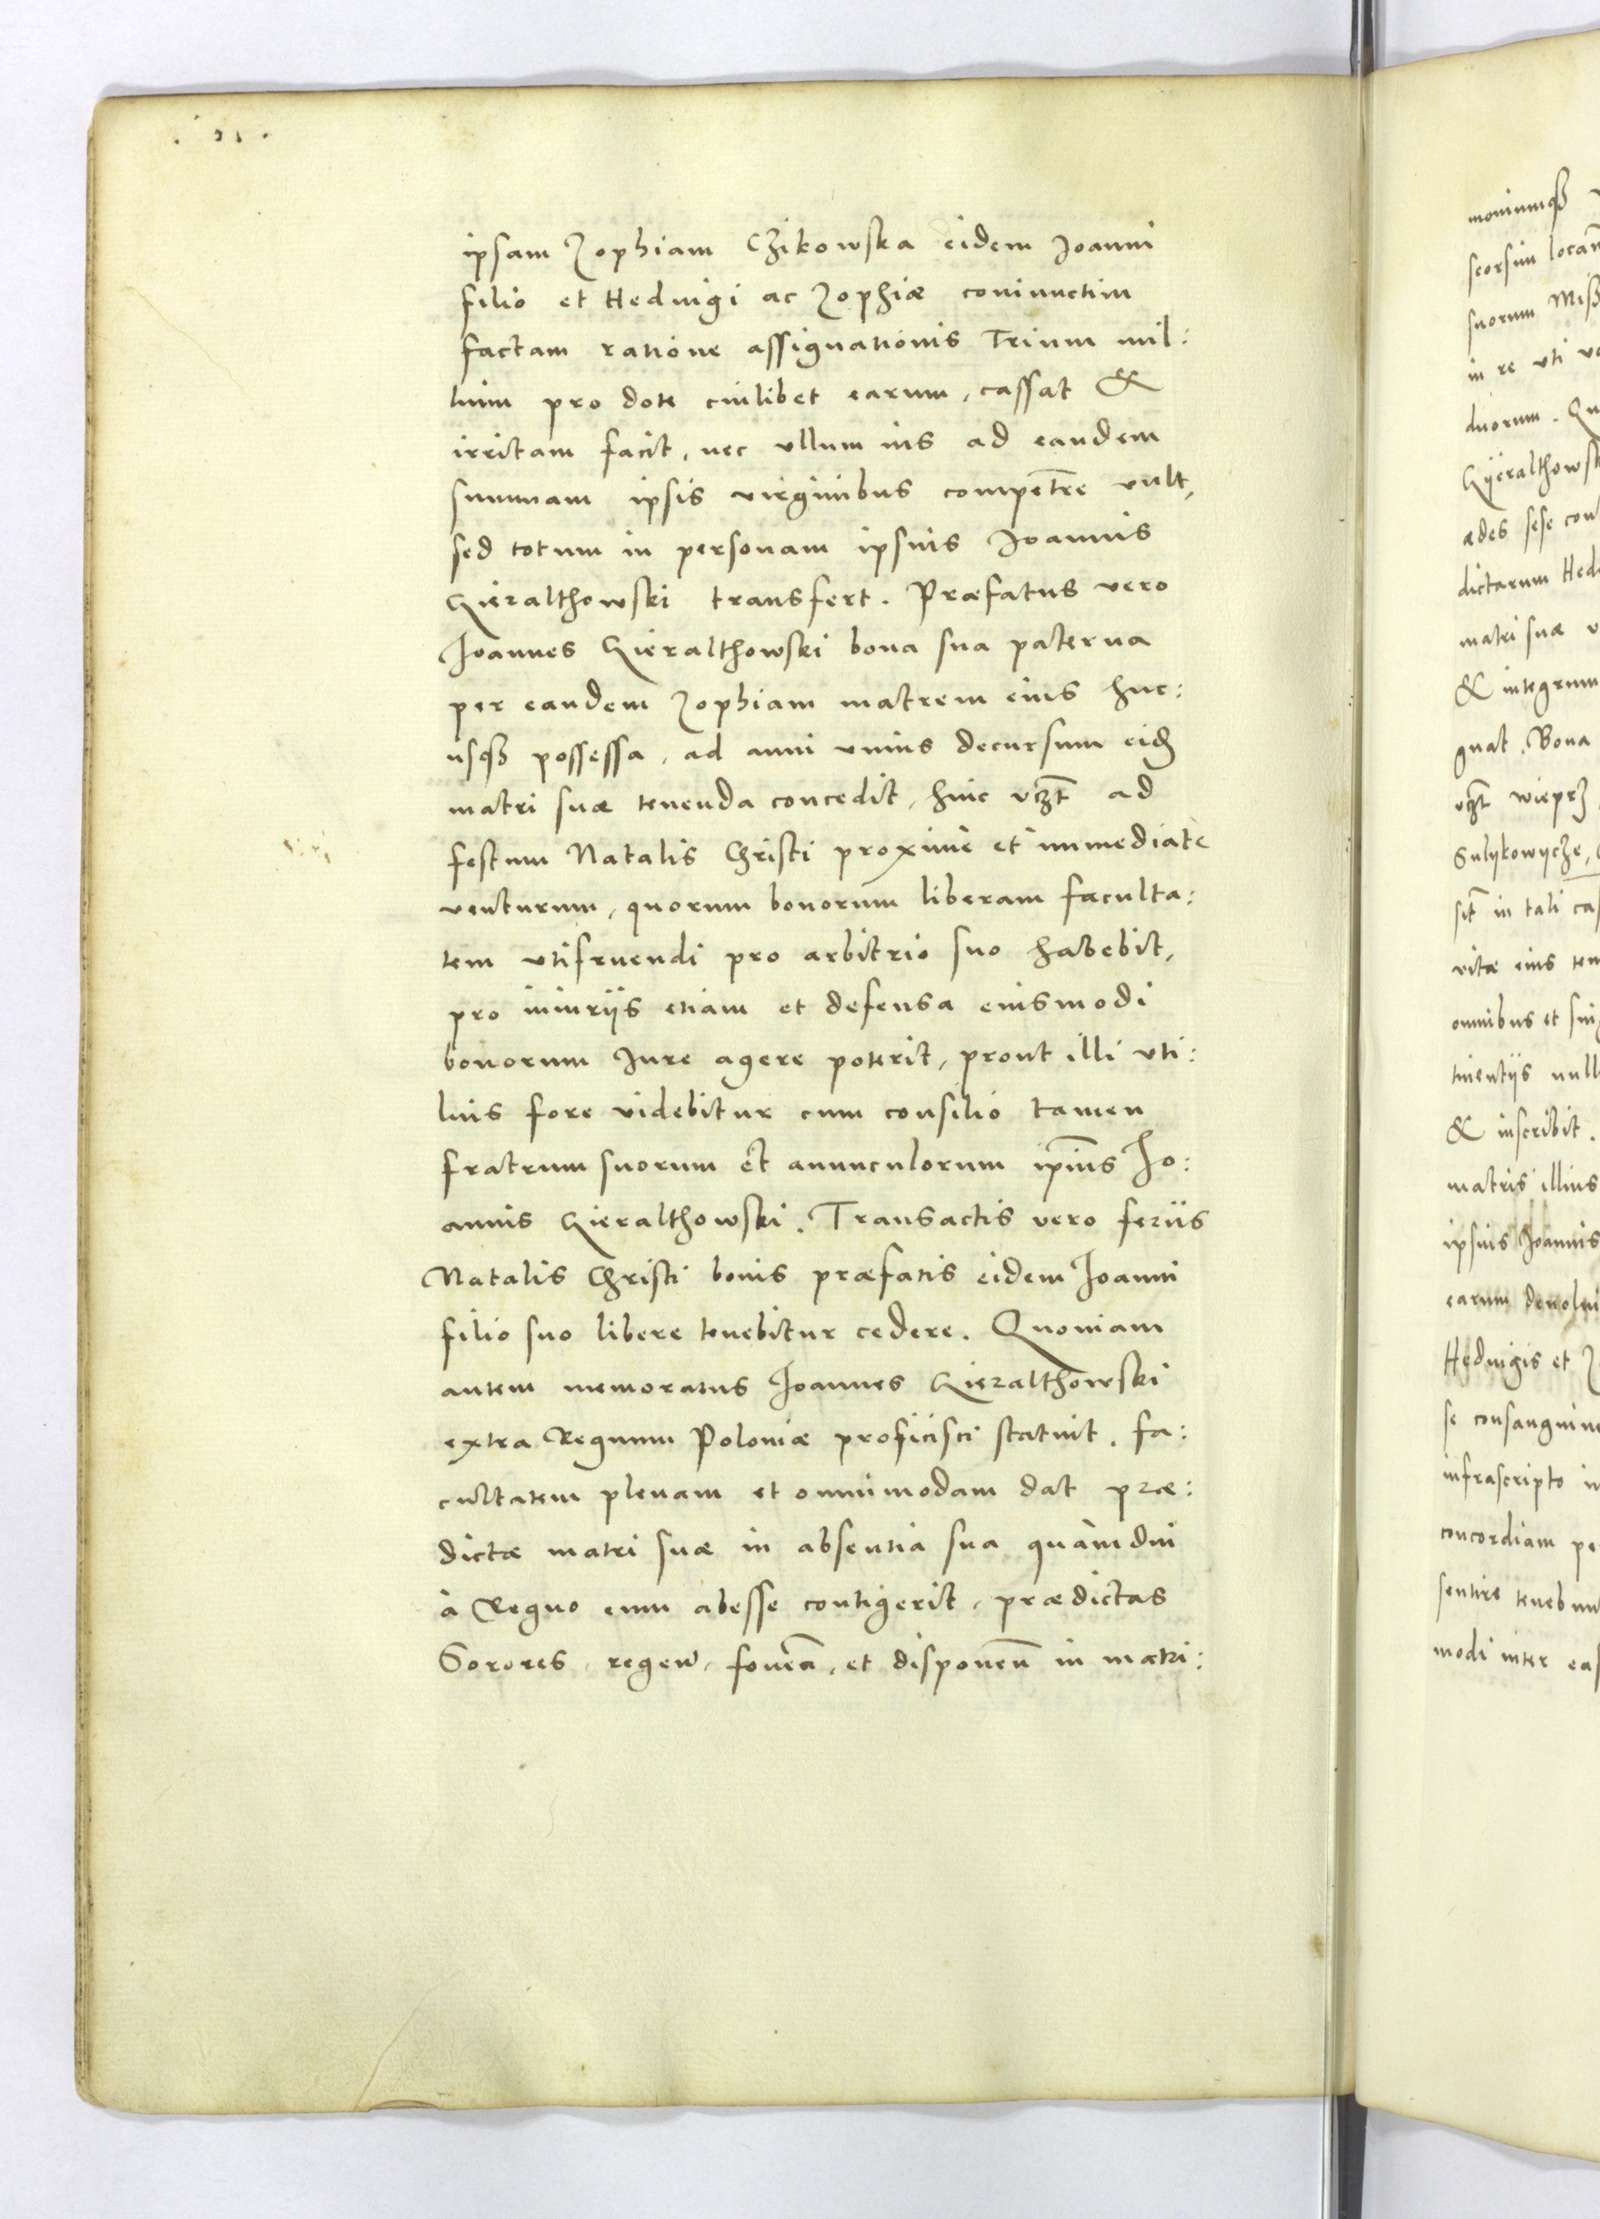 ipsam Zophiam Czikowska eidem Joanni
filio et Hedvigi ac Zophiæ coniunctim
factam ratione assignationis Trium mil:
lium pro dote cuilibet earum, cassat &
irritam facit, nec ullum ius ad eandem
summam ipsis virginibus competere vult,
sed totum in personam ipsius Joannis
Gieralthowski transfert. Præfatus vero
Joannes Gieralthowski bona sua paterna
per eandem Zophiam matrem eius huc:
usqȝ possessa, ad anni unius decursum eid
matri suæ tenenda concedit, hinc vczt ad
festum Natalis Christi proximè et immediatè
venturum, quorum bonorum liberam faculta:
tem utifruendi pro arbitrio suo habebit,
pro iniuriis etiam et defensa eiusmodi
bonorum Jure agere poterit, prout illi uti:
lius fore videbitur cum consilio tamen
fratrum suorum et avunculorum ipius Jo:
annis Gieralthowski. Transactis vero feriis
Natalis Christi bonis præfatis eidem Joanni
filio suo libere tenebitur cedere. Quoniam
autem memoratus Joannes Gieralthowski
extra Regnum Poloniæ proficisci statuit, fa:
cultatem plenam et omnimodam dat præ:
dictæ matri suæ in absentia sua quàmdiu
à Regno eum abesse contigerit, prædictas
Sorores, regen, foven, et disponen in matri:
moniumqȝ
seorsim
suorum
in re uti
duorum.
Gyeralthowsk
ædes sese con
dictarum Hed
matri suæ
& integrum
gnat. Bona
vczt wieprz
Sulykowycze,
sit in tali cas
vitæ eius ten
omnibus et
tinentiis null
& inscribit.
matris illius
ipsius Joannis
earum devolu
Hedvigis et Z
se consanguine
infrascripto
concordiam pe
sentire teneb
modi inter eas